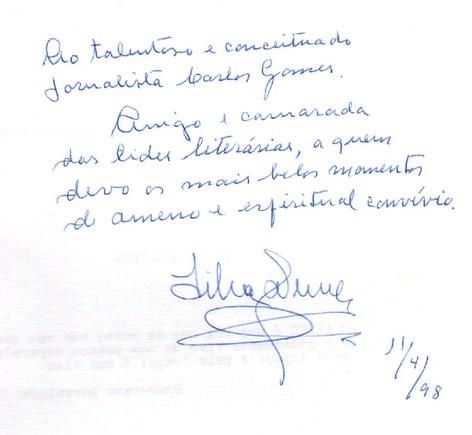 Ao talentoso e conceituado
Jornalista Carlos Gomes.
Amigo e camarada
das lides literárias, a quem
devo os mais belos momentos
de ameno e espiritual convívio.
11/4/98